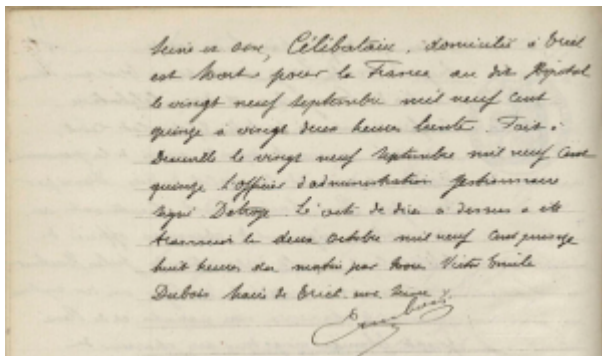 Seine et Oise, Célibataire, domicilié à Triel
est Mort pour la France au dit Hôpital
le vingt neuf Septembre mil neuf cent
quinze à vingt deux heures trente. Fait à
le vingt neuf Septembre mil neuf cent
quinze L'Officier d'administration gestionnaire
signé L'acte de décès ci dessus a été
transcrit le deux Octobre mil neuf cent quinze
huit heures du matin par Nous Victor Emile
Dubois Maire de Triel sur Seine